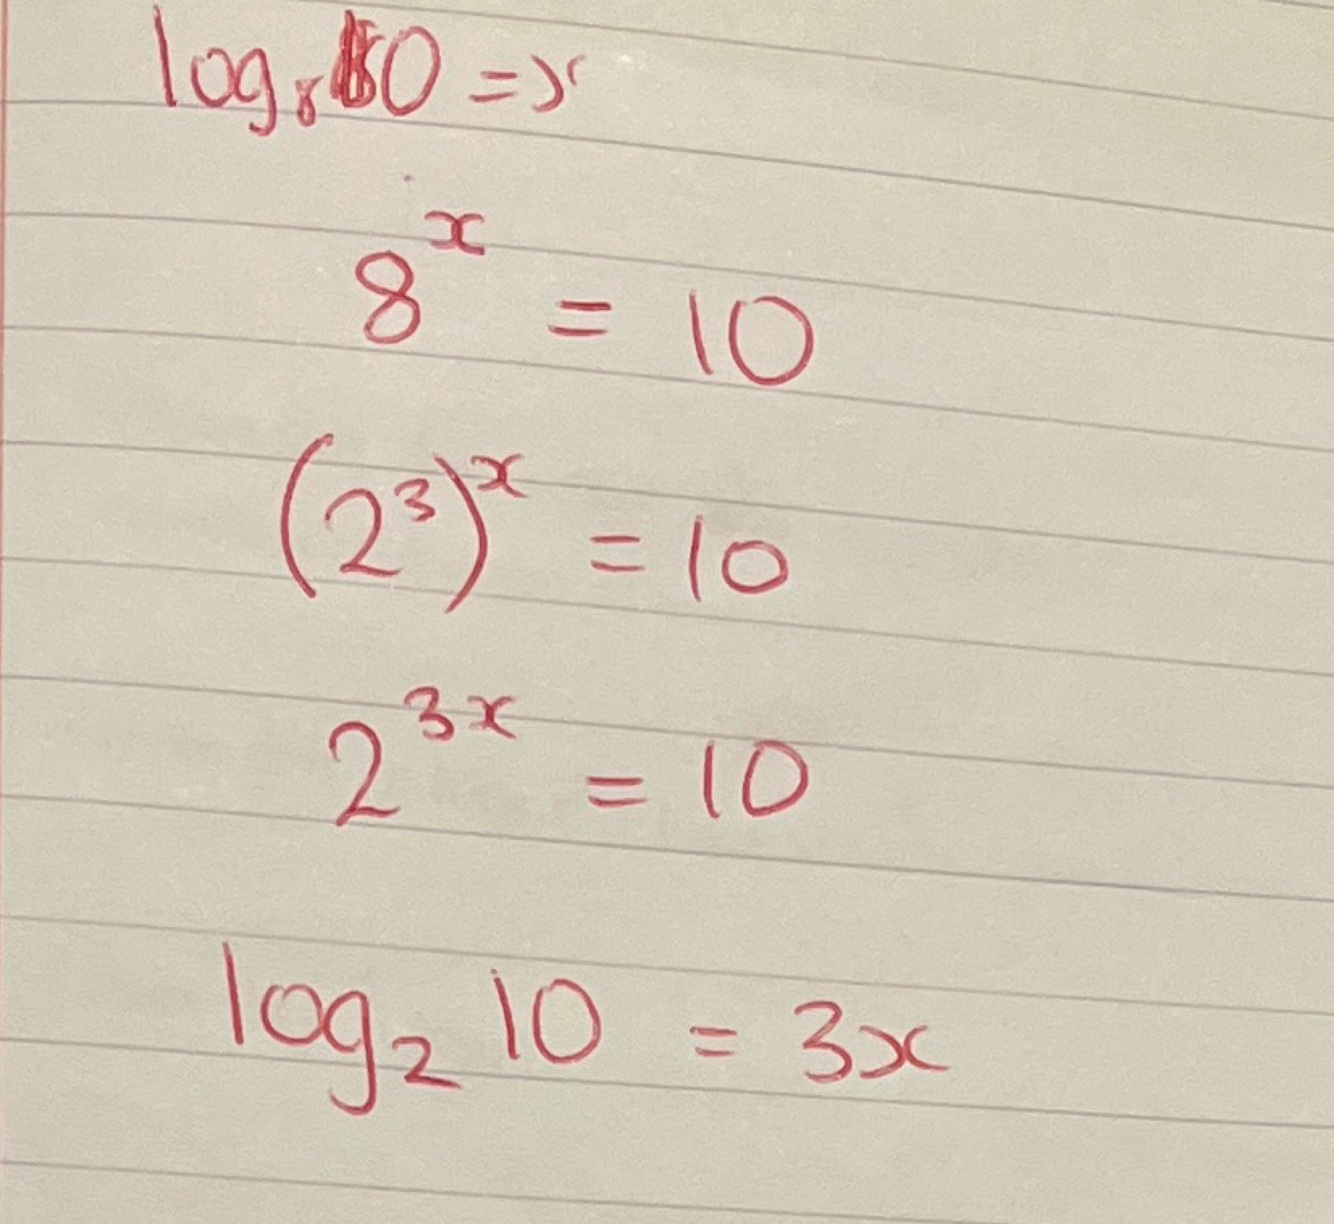 log₈ 10 = x
8ˣ = 10
(2³)ˣ = 10
2³ˣ = 10
log₂ 10 = 3x